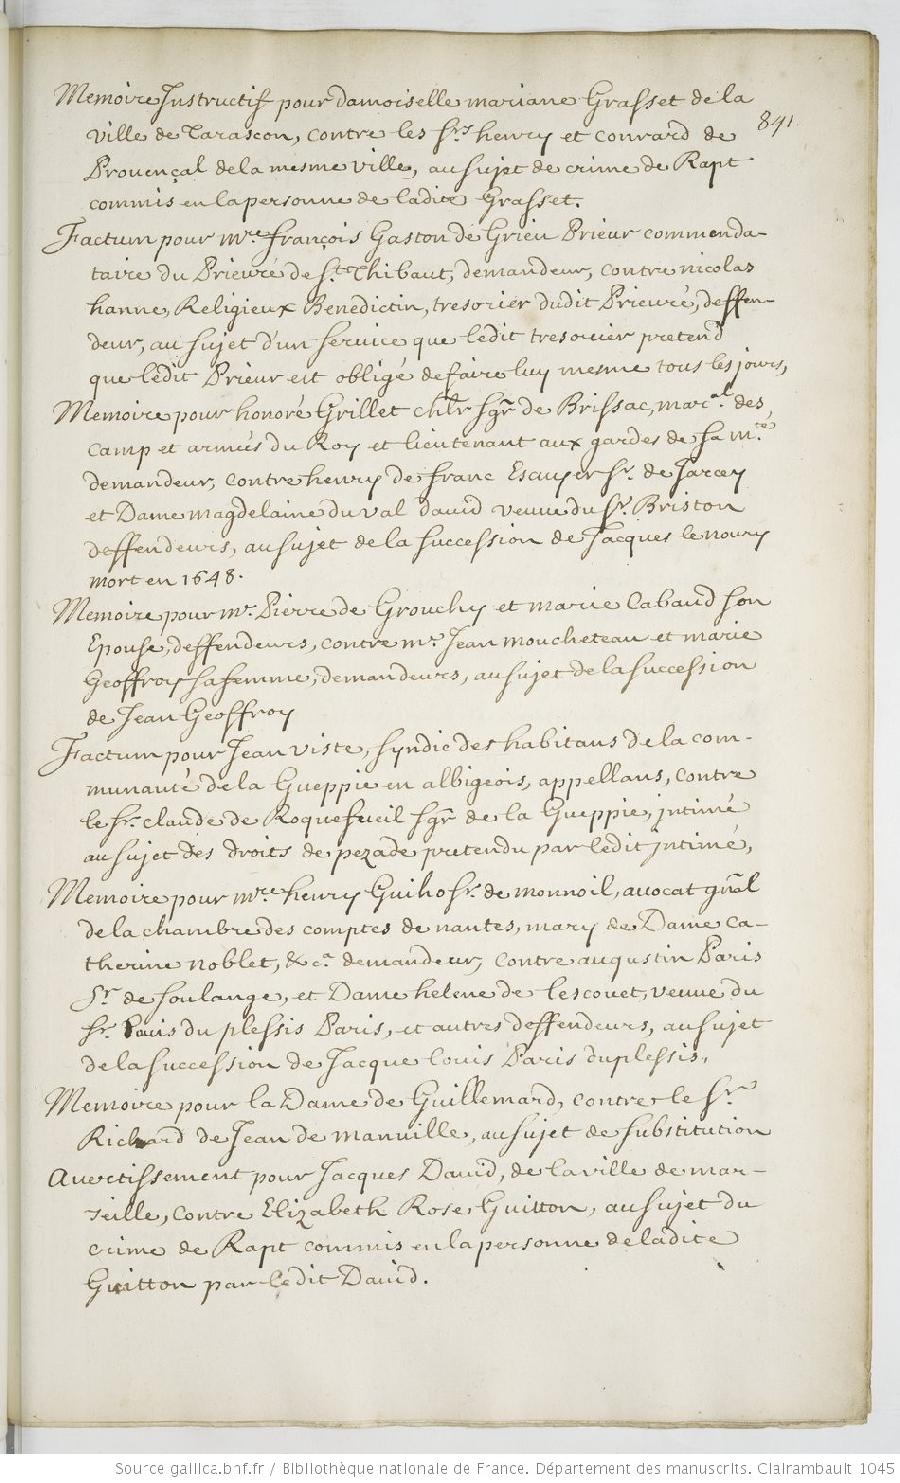 Memoire Instructif pour damoiselle mariane Grasset de la
841
ville de Tarascon, contre les Srs henry et conrard de
Provençal de la mesme ville, au sujet de crime de Rapt
commis en la personne de ladite Grasset.
Factum pour Mre françois Gaston de Grieu Prieur commenda-
taire du Prieuré de St Thibaut, demandeur, contre nicolas
hanne, Religieux Benedictin, tresorier dudit Prieuré, deffen-
deur, au sujet d'un service que ledit tresorier pretend
que ledit Prieur est obligé de faire luy mesme tous les jours,
Memoire pour honoré Grillet chlr sgr de Brissac, maral des
camp et armées du Roy et lieutenant aux gardes de sa mté
demandeur, contre henry de franc Escuyer sr. de Jarcey
et Dame magdelaine du val david veuve du Sr. Briston
deffendeurs, au sujet de la succession de Jacques le noury
mort en 1648.
Memoire pour mr. Pierre de Grouchy et marie Cabaud son
Epouse, deffendeurs, contre mr. Jean moucheteau et marie
Geoffroy sa femme, demandeurs, au sujet de la succession
de Jean Geoffroy
Factum pour Jean viste, syndic des habitans de la com-
munauté de la Gueppie en albigeois, appellans, contre
le sr. claude de Roquefueil sgr de la Gueppie, intimé
au sujet des droits de pezade pretendu par ledit intimé,
Memoire pour mre henry Guiho sr. de monnoil, avocat gnal
de la chambre des comptes de nantes, mary de Dame Ca-
therine noblet, &ca demandeur, contre augustin Paris
Sr de soulange, et Dame helene de lescouet, veuve du
sr. Paris du plessis Paris, et autres deffendeurs, au sujet
de la succession de Jacque louis Paris duplessis,
Memoire pour la Dame de Guillemard, contre le Sr
Richard de Jean de manville, au sujet de substitution
Avertissement pour Jacques David, de la ville de mar-
seille, contre Elizabeth Rose Guitton, au sujet du
crime de Rapt commis en la personne de ladite
Guitton par ledit David.
Source gallica.bnf.fr / Bibliothèque nationale de France. Département des manuscrits. Clairambault 1045